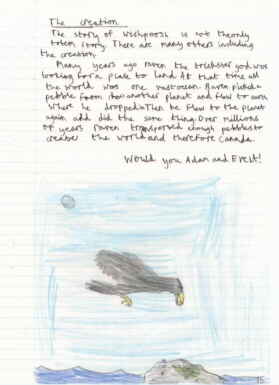 The creation
The story of Wishpoosh is not the only
totem story. There are many others including
the creation.
Many years ago raven the trickster god was
looking for a place to land. At that time all
the world was one vast ocean. Raven picked a
pebble from another planet and flew to earth
where he dropped Then he flew to the planet
again and did the same thing. Over millions
of years raven transported enough pebbles to
create the world and therefore Canada.
Would you Adam and Eve it!